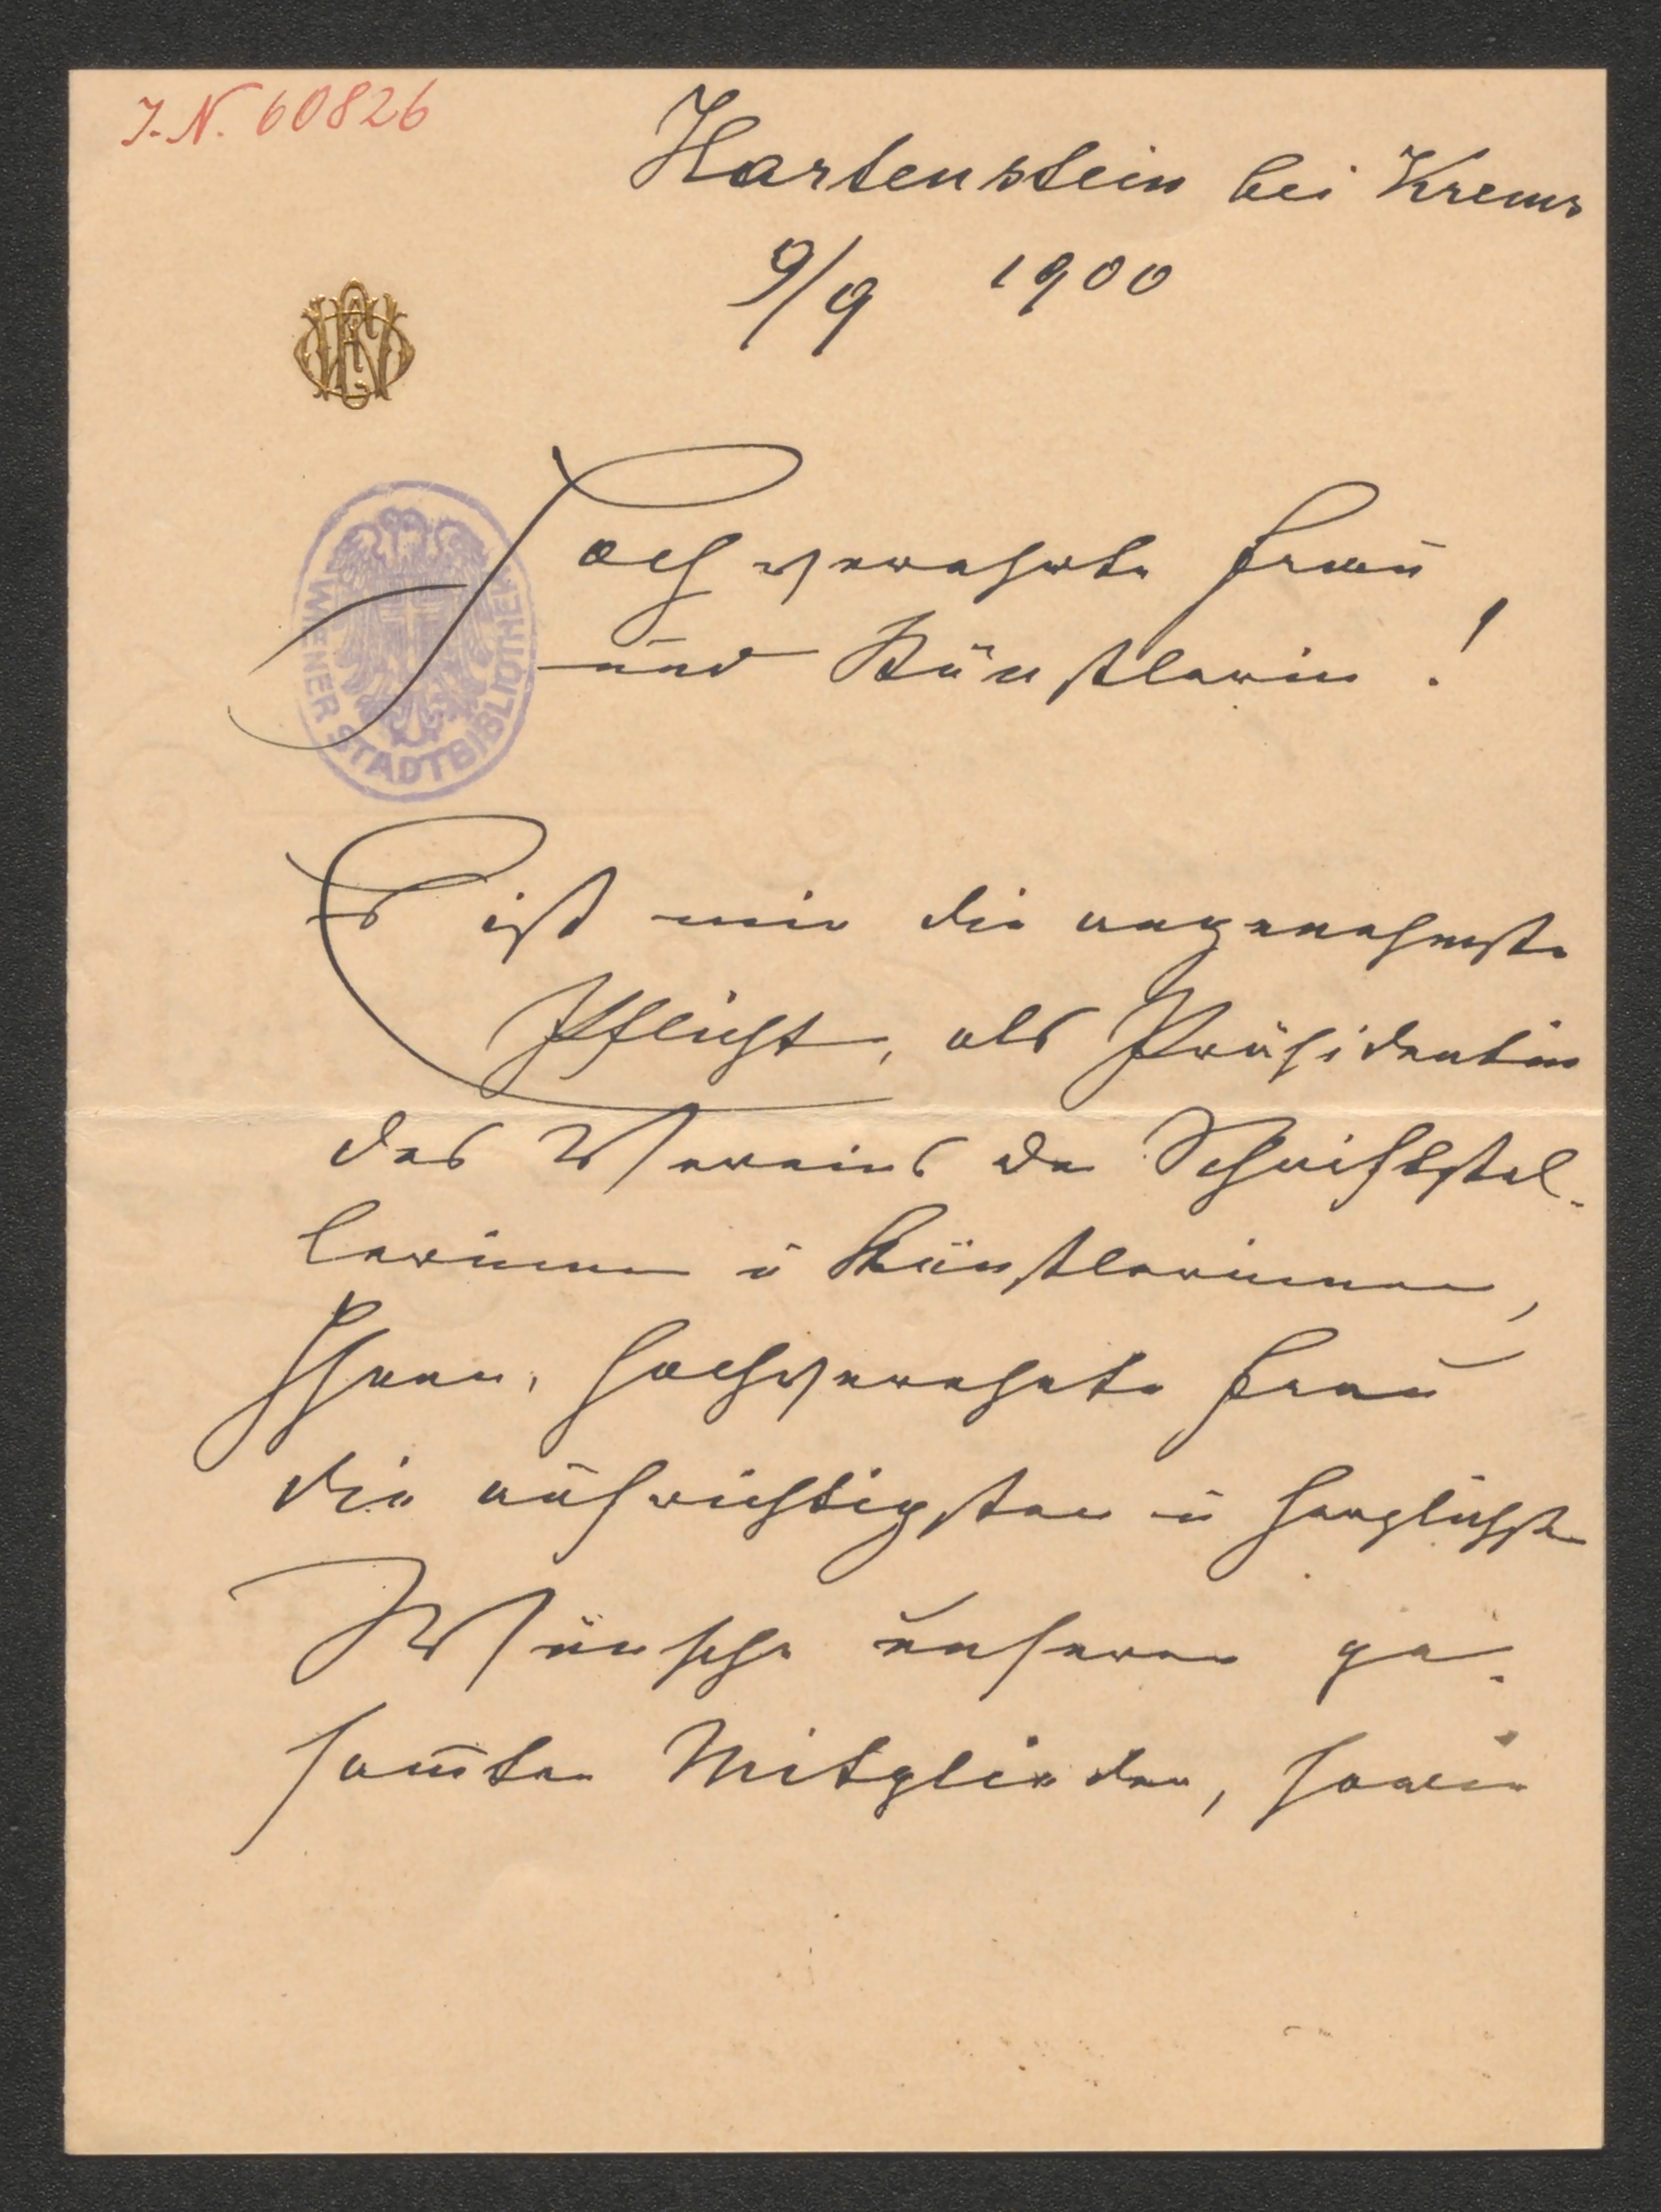 I.N. 60826
Hartenstein bei Krems
9/9 1900
Hochverehrte Frau
und Künstlerin!
WIENER STADTBIBLIOTHEK
Es ist mir die angenehmste
Pflicht, als Präsidentin
des Vereins der Schriftstel-
lerinnen u Künstlerinnen,
Ihnen, hochverehrte Frau
die aufrichtigsten u herzlichsten
Wünsche unserer ge-
sam̄ten Mitglieder, sowie